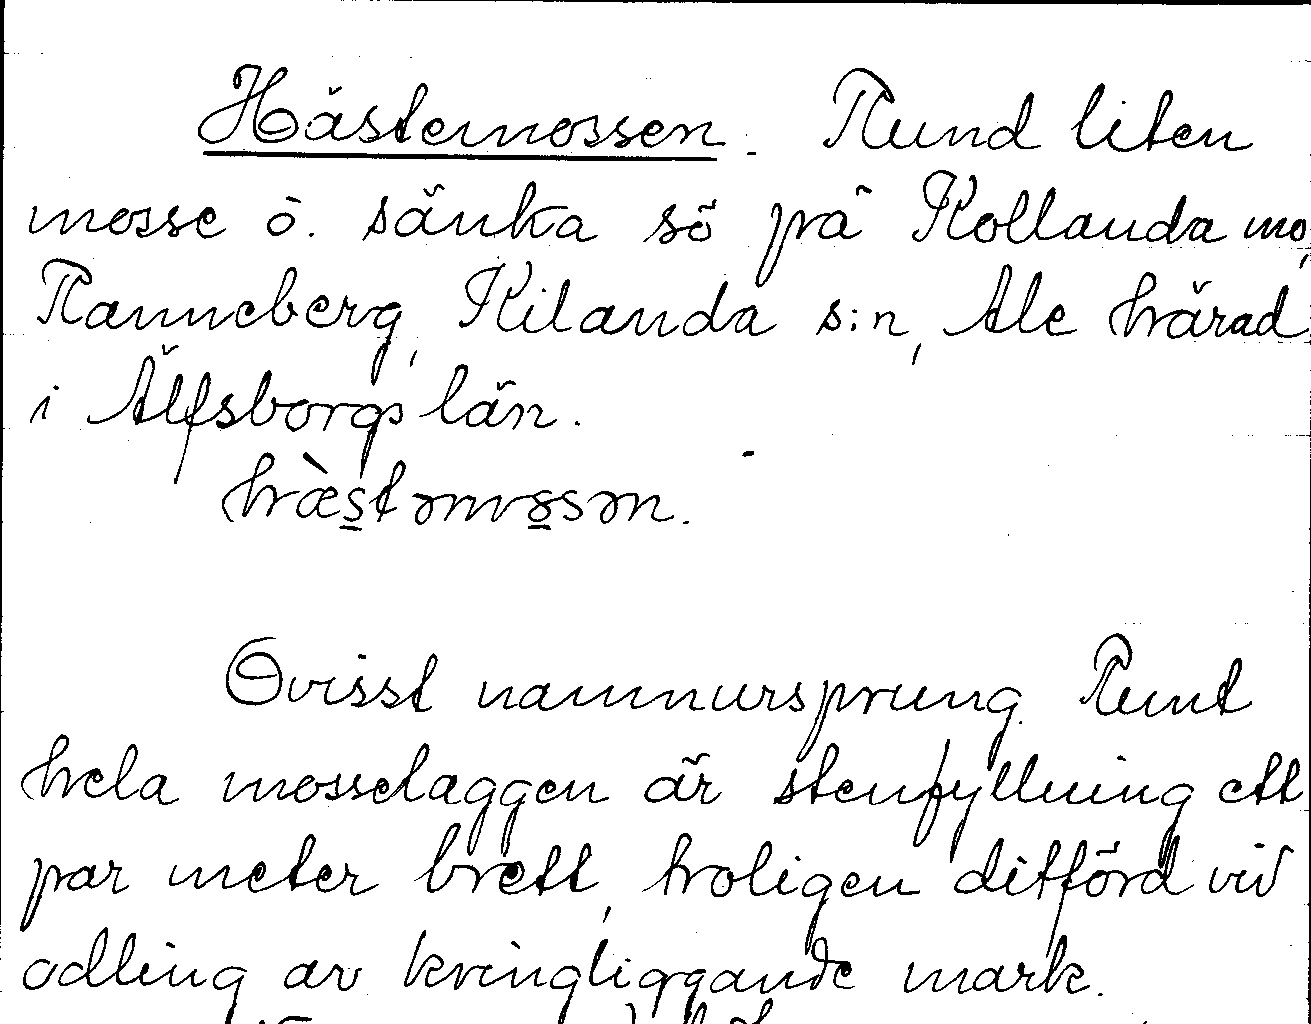 Hästemossen. Rund liten
mosse o. sänka sö på Kollanda mo,
Ranneberg, Kilanda s:n, Ale härad
i Älfsborgs län.
hæ̀s̲təmo̲sən.
Ovisst namnursprung. Runt
hela mosselaggen är stenfyllning ett
par meter brett, troligen ditförd vid
odling av kringliggande mark.